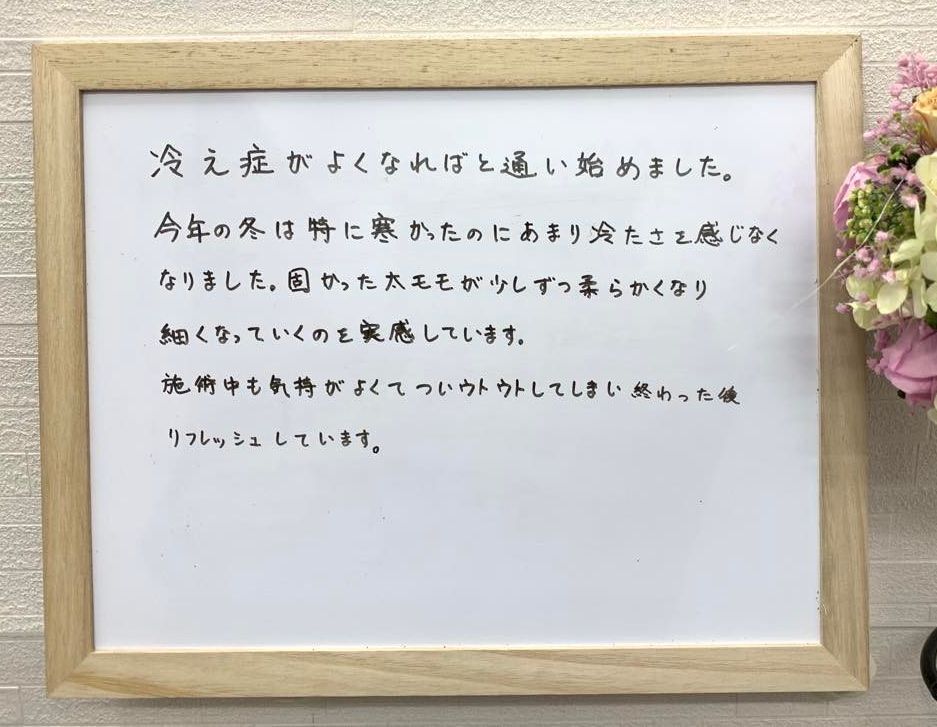 冷え症がよくなればと通い始めました。
今年の冬は特に寒かったのにあまり冷たさを感じなく
なりました。固かった太モモが少しずつ柔らかくなり
細くなっていくのを実感しています。
施術中も気持がよくてついウトウトしてしまい終わった後
リフレッシュしています。